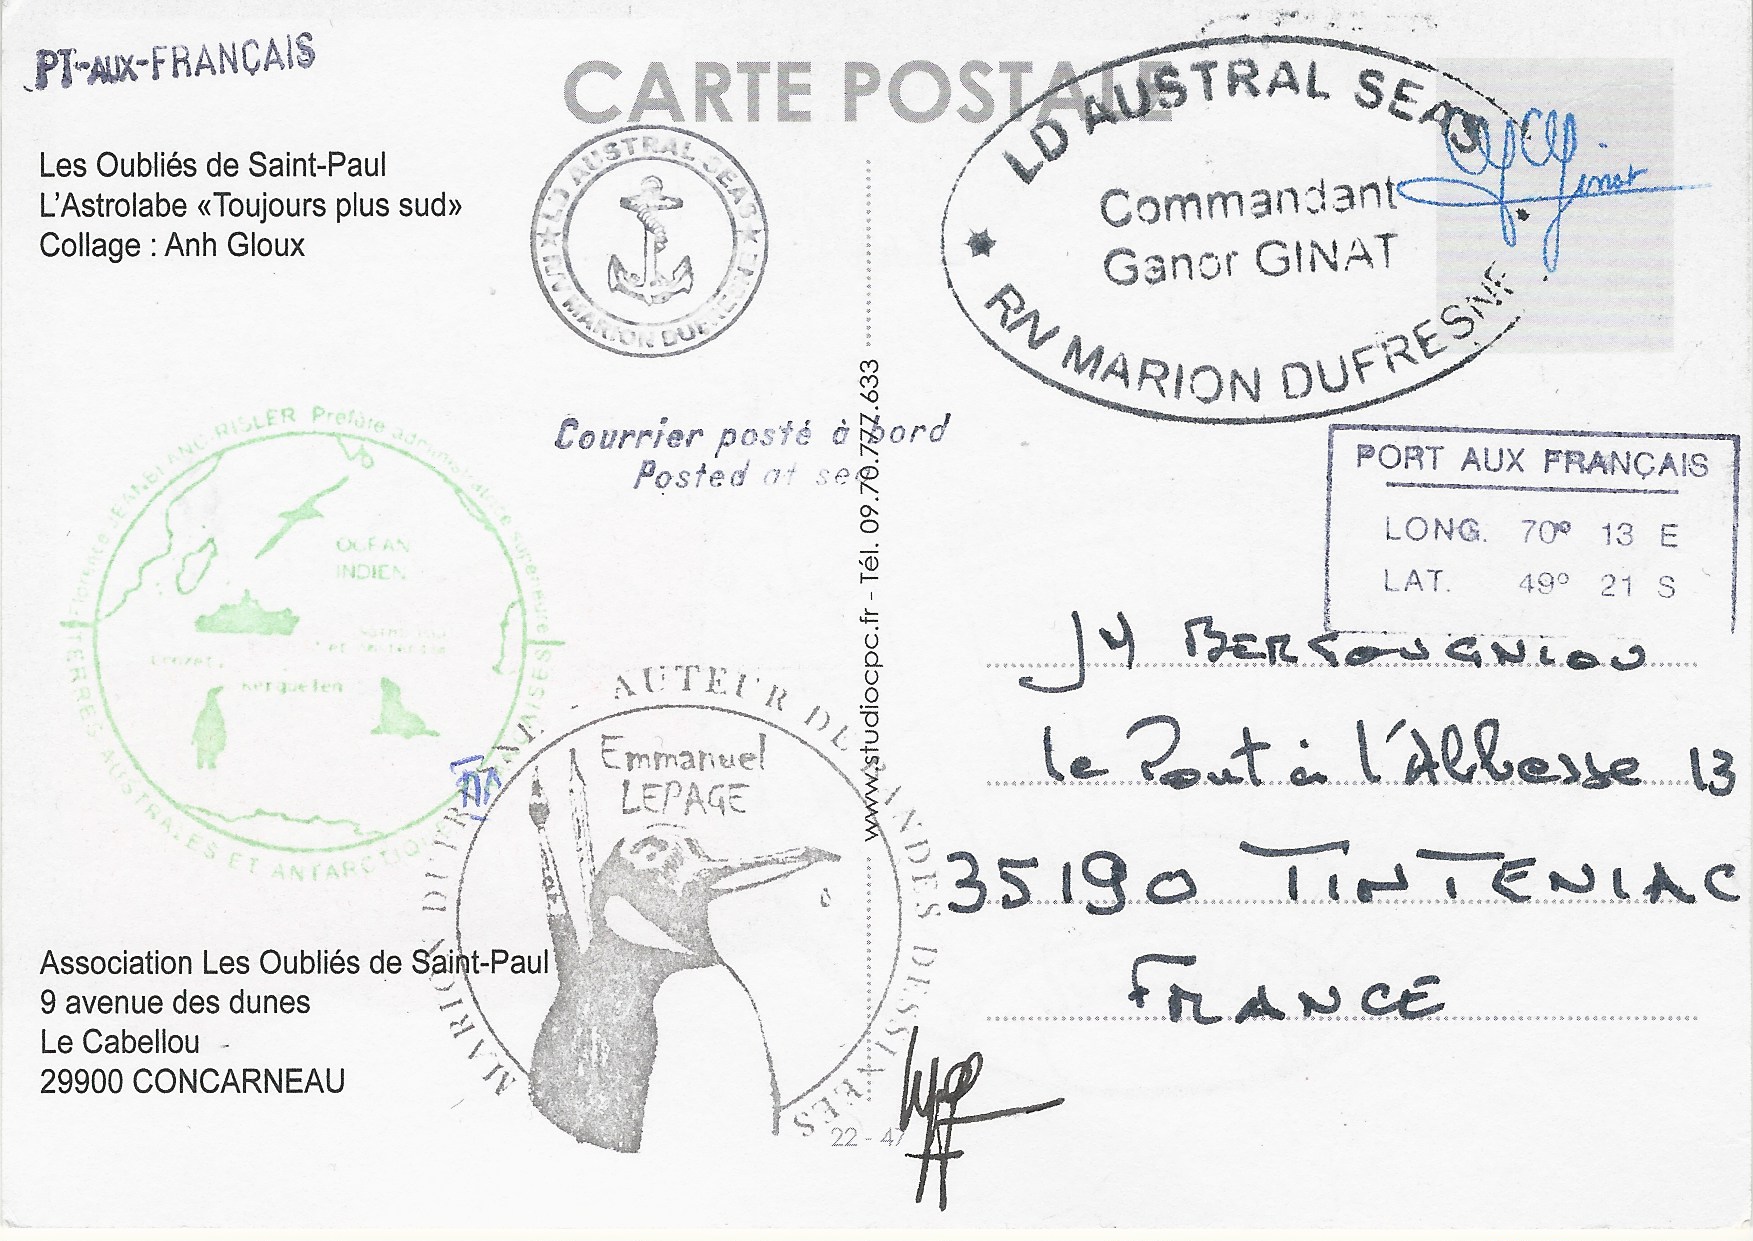 PT-AUX-FRANÇAIS
CARTE POSTALE
Les Oubliés de Saint-Paul
L'Astrolabe «Toujours plus sud»
Collage : Anh Gloux
LD AUSTRAL SEAS
RN MARION DUFRESNE
LD AUSTRAL SEAS
Commandant
Ganor GINAT
RN MARION DUFRESNE
Ginat
Courrier posté à bord
Posted at sea
PORT AUX FRANÇAIS
LONG. 70° 13 E
LAT. 49° 21 S
Florence JEANBLANC-RISLER Préfète administratrice supérieure
OCÉAN
INDIEN
Crozet
Kerguelen
TERRES AUSTRALES ET ANTARCTIQUES FRANÇAISES
MARION DUFRESNE - AUTEUR DE BANDES DESSINÉES
Emmanuel
LEPAGE
www.studiocpc.fr - Tél. 09.70.777.633
JM BERGOUGNIOU
le Pont à l'Abbesse 13
35190 TINTENIAC
FRANCE
Association Les Oubliés de Saint-Paul
9 avenue des dunes
Le Cabellou
29900 CONCARNEAU
22 - 47